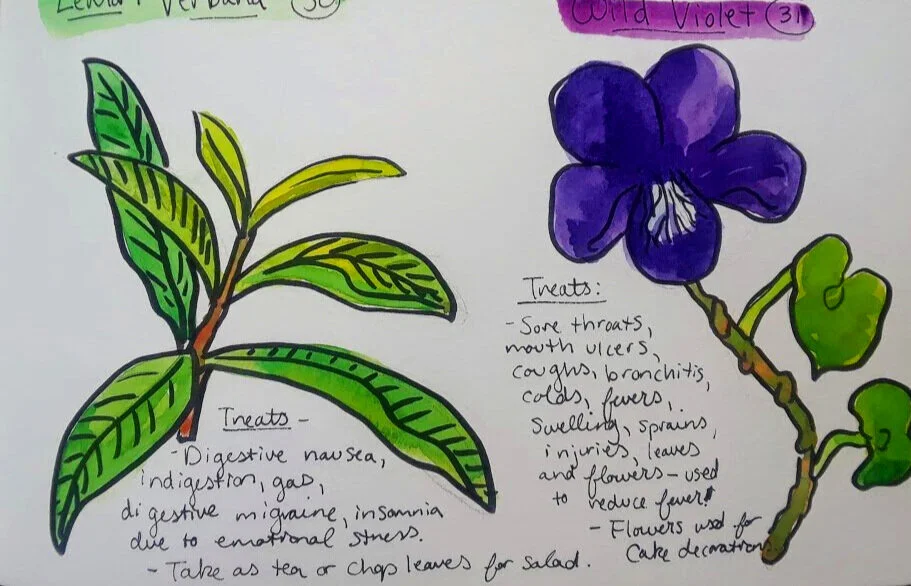 Lemon Verbana 30
Treats -
- Digestive nausea,
indigestion, gas,
digestive migraine, insomnia
due to emotional stress.
- Take as tea or chop leaves for salad.
Wild Violet 31
Treats:
- Sore throats,
mouth ulcers,
coughs, bronchitis,
colds, fevers,
Swelling, sprains,
injuries, leaves
and flowers - used
to reduce fever!
- Flowers used for
Cake decorations